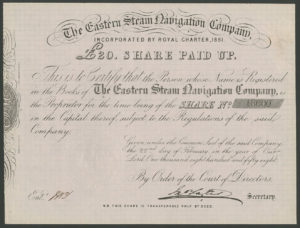 The Eastern Steam Navigation Company,
INCORPORATED BY ROYAL CHARTER, 1851.
£20. SHARE PAID UP.
This is to Certify that the Person whose Name is Registered
in the Books of The Eastern Steam Navigation Company, is
the Proprietor for the time being of the SHARE No.
in the Capital thereof, subject to the Regulations of the said
Company.
Given under the Common Seal of the said Company
the 22nd day of February in the year of Our
Lord One thousand eight hundred and fifty eight.
By Order of the Court of Directors.
Entd.
Secretary.